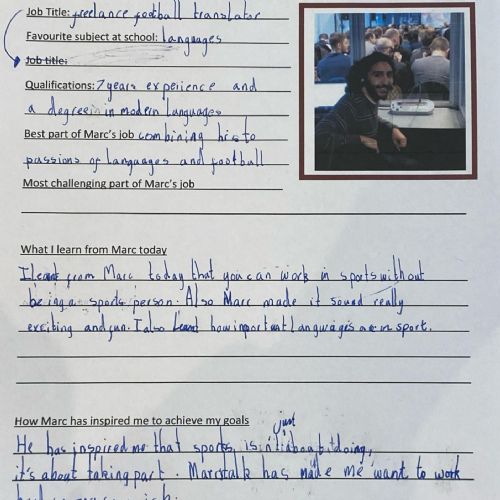 Job Title: freelance football translator
Favourite subject at school: languages
Job title:
Qualifications: 7 years experience and
a degree in modern languages
Best part of Marc's job combining his to
passions of languages and football
Most challenging part of Marc's job
What I learn from Marc today
I learnt from Marc today that you can work in sports without
being a sports person. Also Marc made it sound really
exciting and fun. I also learnt how important languages are in sport.
How Marc has inspired me to achieve my goals
He has inspired me that sports isn't just about doing,
it's about taking part. Marcs talk has made me want to work